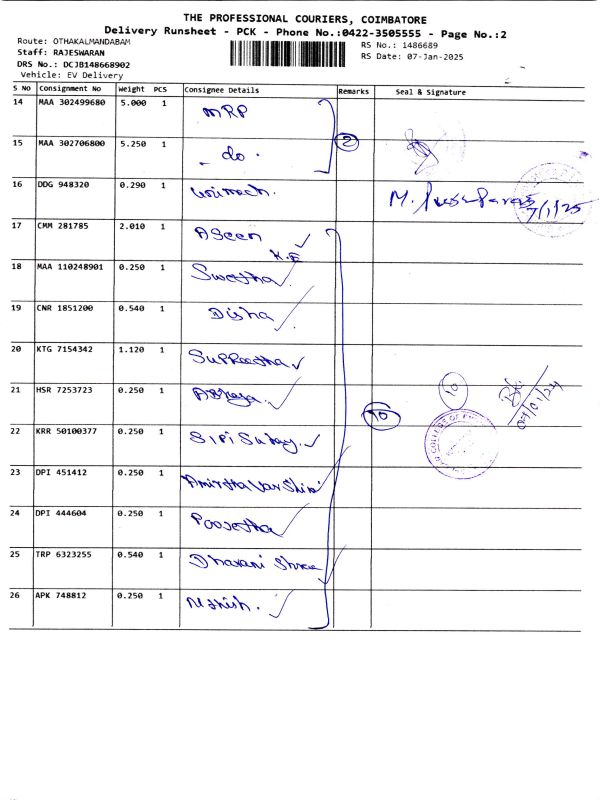 THE PROFESSIONAL COURIERS, COIMBATORE
Delivery Runsheet - PCK - Phone No.:0422-3505555 - Page No.:2
Route: OTHAKALMANDABAM
RS No.: 1486689
Staff: RAJESWARAN
RS Date: 07-Jan-2025
DRS No.: DCJB148668902
Vehicle: EV Delivery
S No Consignment No Weight PCS Consignee Details Remarks Seal & Signature
14 MAA 302499680 5.000 1 MRP
2
15 MAA 302706800 5.250 1 - do .
16 DDG 948320 0.290 1
M. 7/1/25
17 CMM 281785 2.010 1 ASeen
K.E
18 MAA 110248901 0.250 1 Swetha
19 CNR 1851200 0.540 1 Disha
20 KTG 7154342 1.120 1 Supreetha
21 HSR 7253723 0.250 1
10 10
22 KRR 50100377 0.250 1
23 DPI 451412 0.250 1 Amirtha Varshini
24 DPI 444604 0.250 1 Poojetha
25 TRP 6323255 0.540 1 Dharani Shree
26 APK 748812 0.250 1